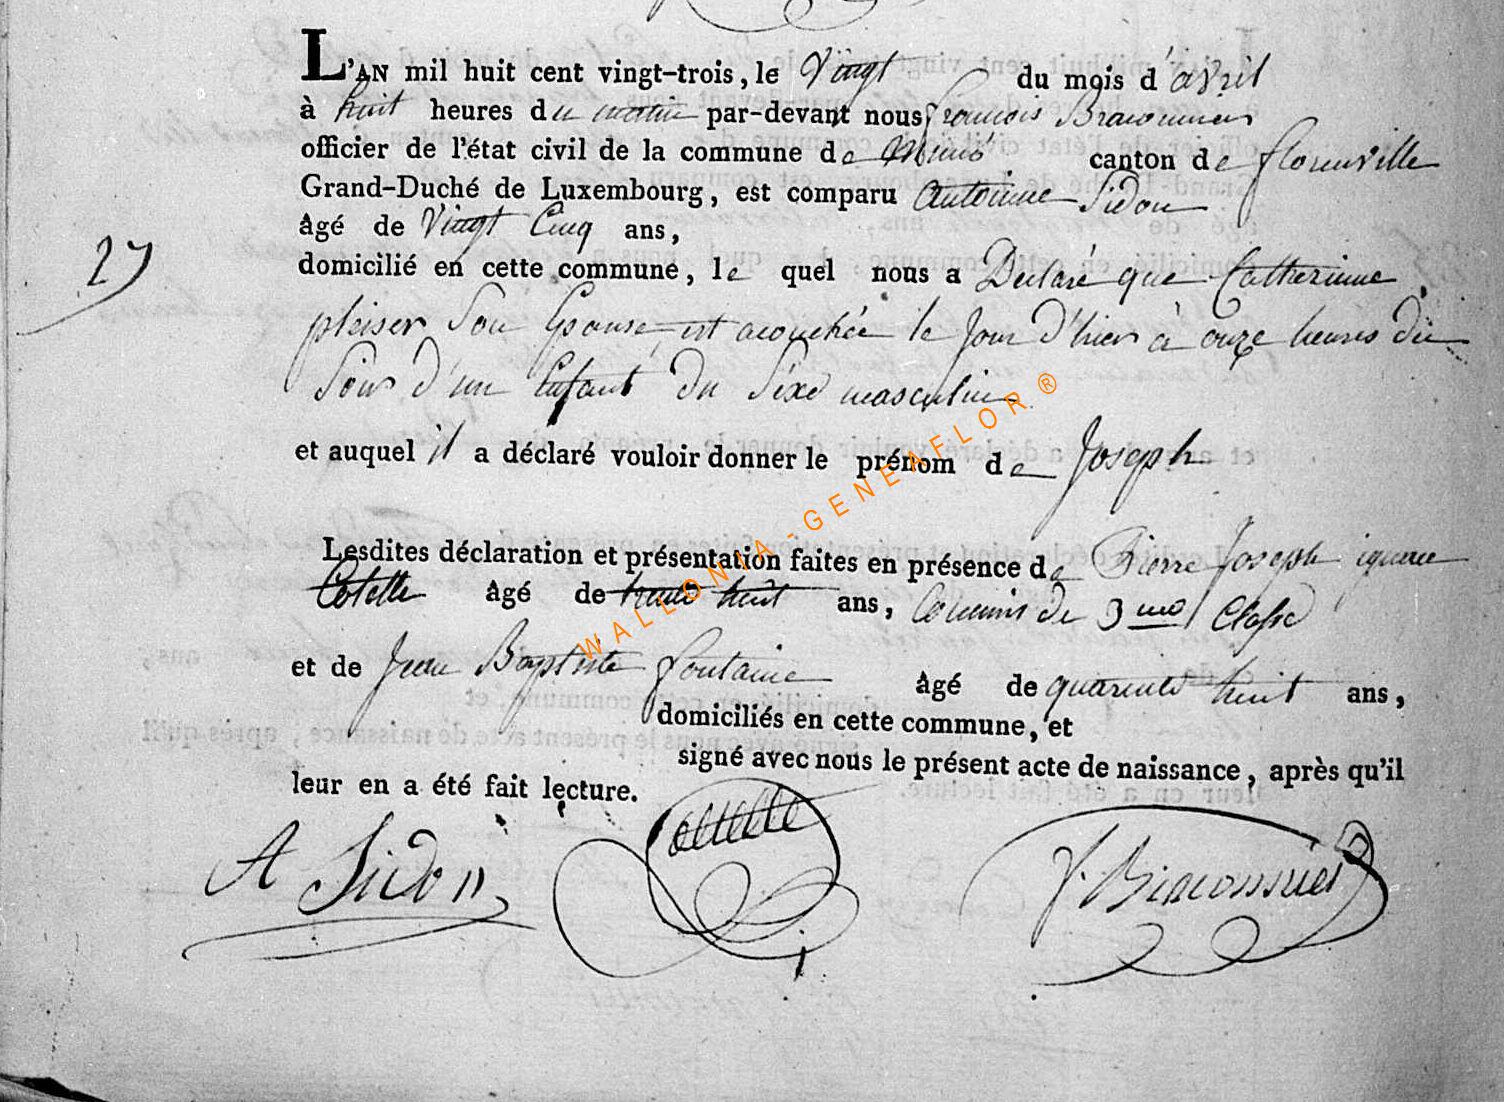 L'AN mil huit cent vingt-trois, le Vingt du mois d'avril
à huit heures du matin par-devant nous françois Braconnier
officier de l'état civil de la commune de canton de florenville
Grand-Duché de Luxembourg, est comparu Antoinne Sidon
âgé de Vingt Cinq ans,
27
domicilié en cette commune, le quel nous a Declaré que Catherinne
pleiser Son Epouse est acouchée le Jour d'hier à onze heures du
Soir d'un Enfant du Sexe masculin
et auquel il a déclaré vouloir donner le prénom de Joseph
Lesdites déclaration et présentation faites en présence de Pierre Joseph ignace
Cotelle âgé de trente huit ans, Commis de 3me Classe
et de Jean Baptiste fontaine âgé de quarente huit ans,
domiciliés en cette commune, et
signé avec nous le présent acte de naissance, après qu'il
leur en a été fait lecture.
A Sidon Cottelle f. Braconnier
WALLONIA-GENEAFLOR®